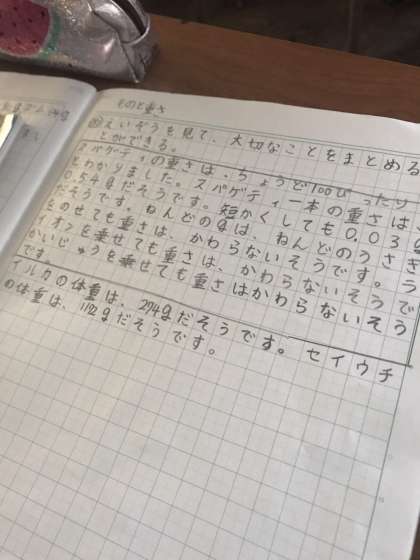 ものと重さ
えいぞうを見て、大切なことをまとめる
ことができる。
スパゲティの重さは、ちょうど100ぴったり
とわかりました。スパゲティー本の重さは
0.54gだそうです。短かくしても0.03g
だそうです。ねんどの重は、ねんどのうさぎ
をのせても重さは、かわらないそうです。ラ
イオンを乗せても重さは、かわらないそうで
かいじゅうを乗せても重さはかわらないそう
です。
イルカの体重は、274gだそうです。セイウチ
の体重は、112gだそうです。